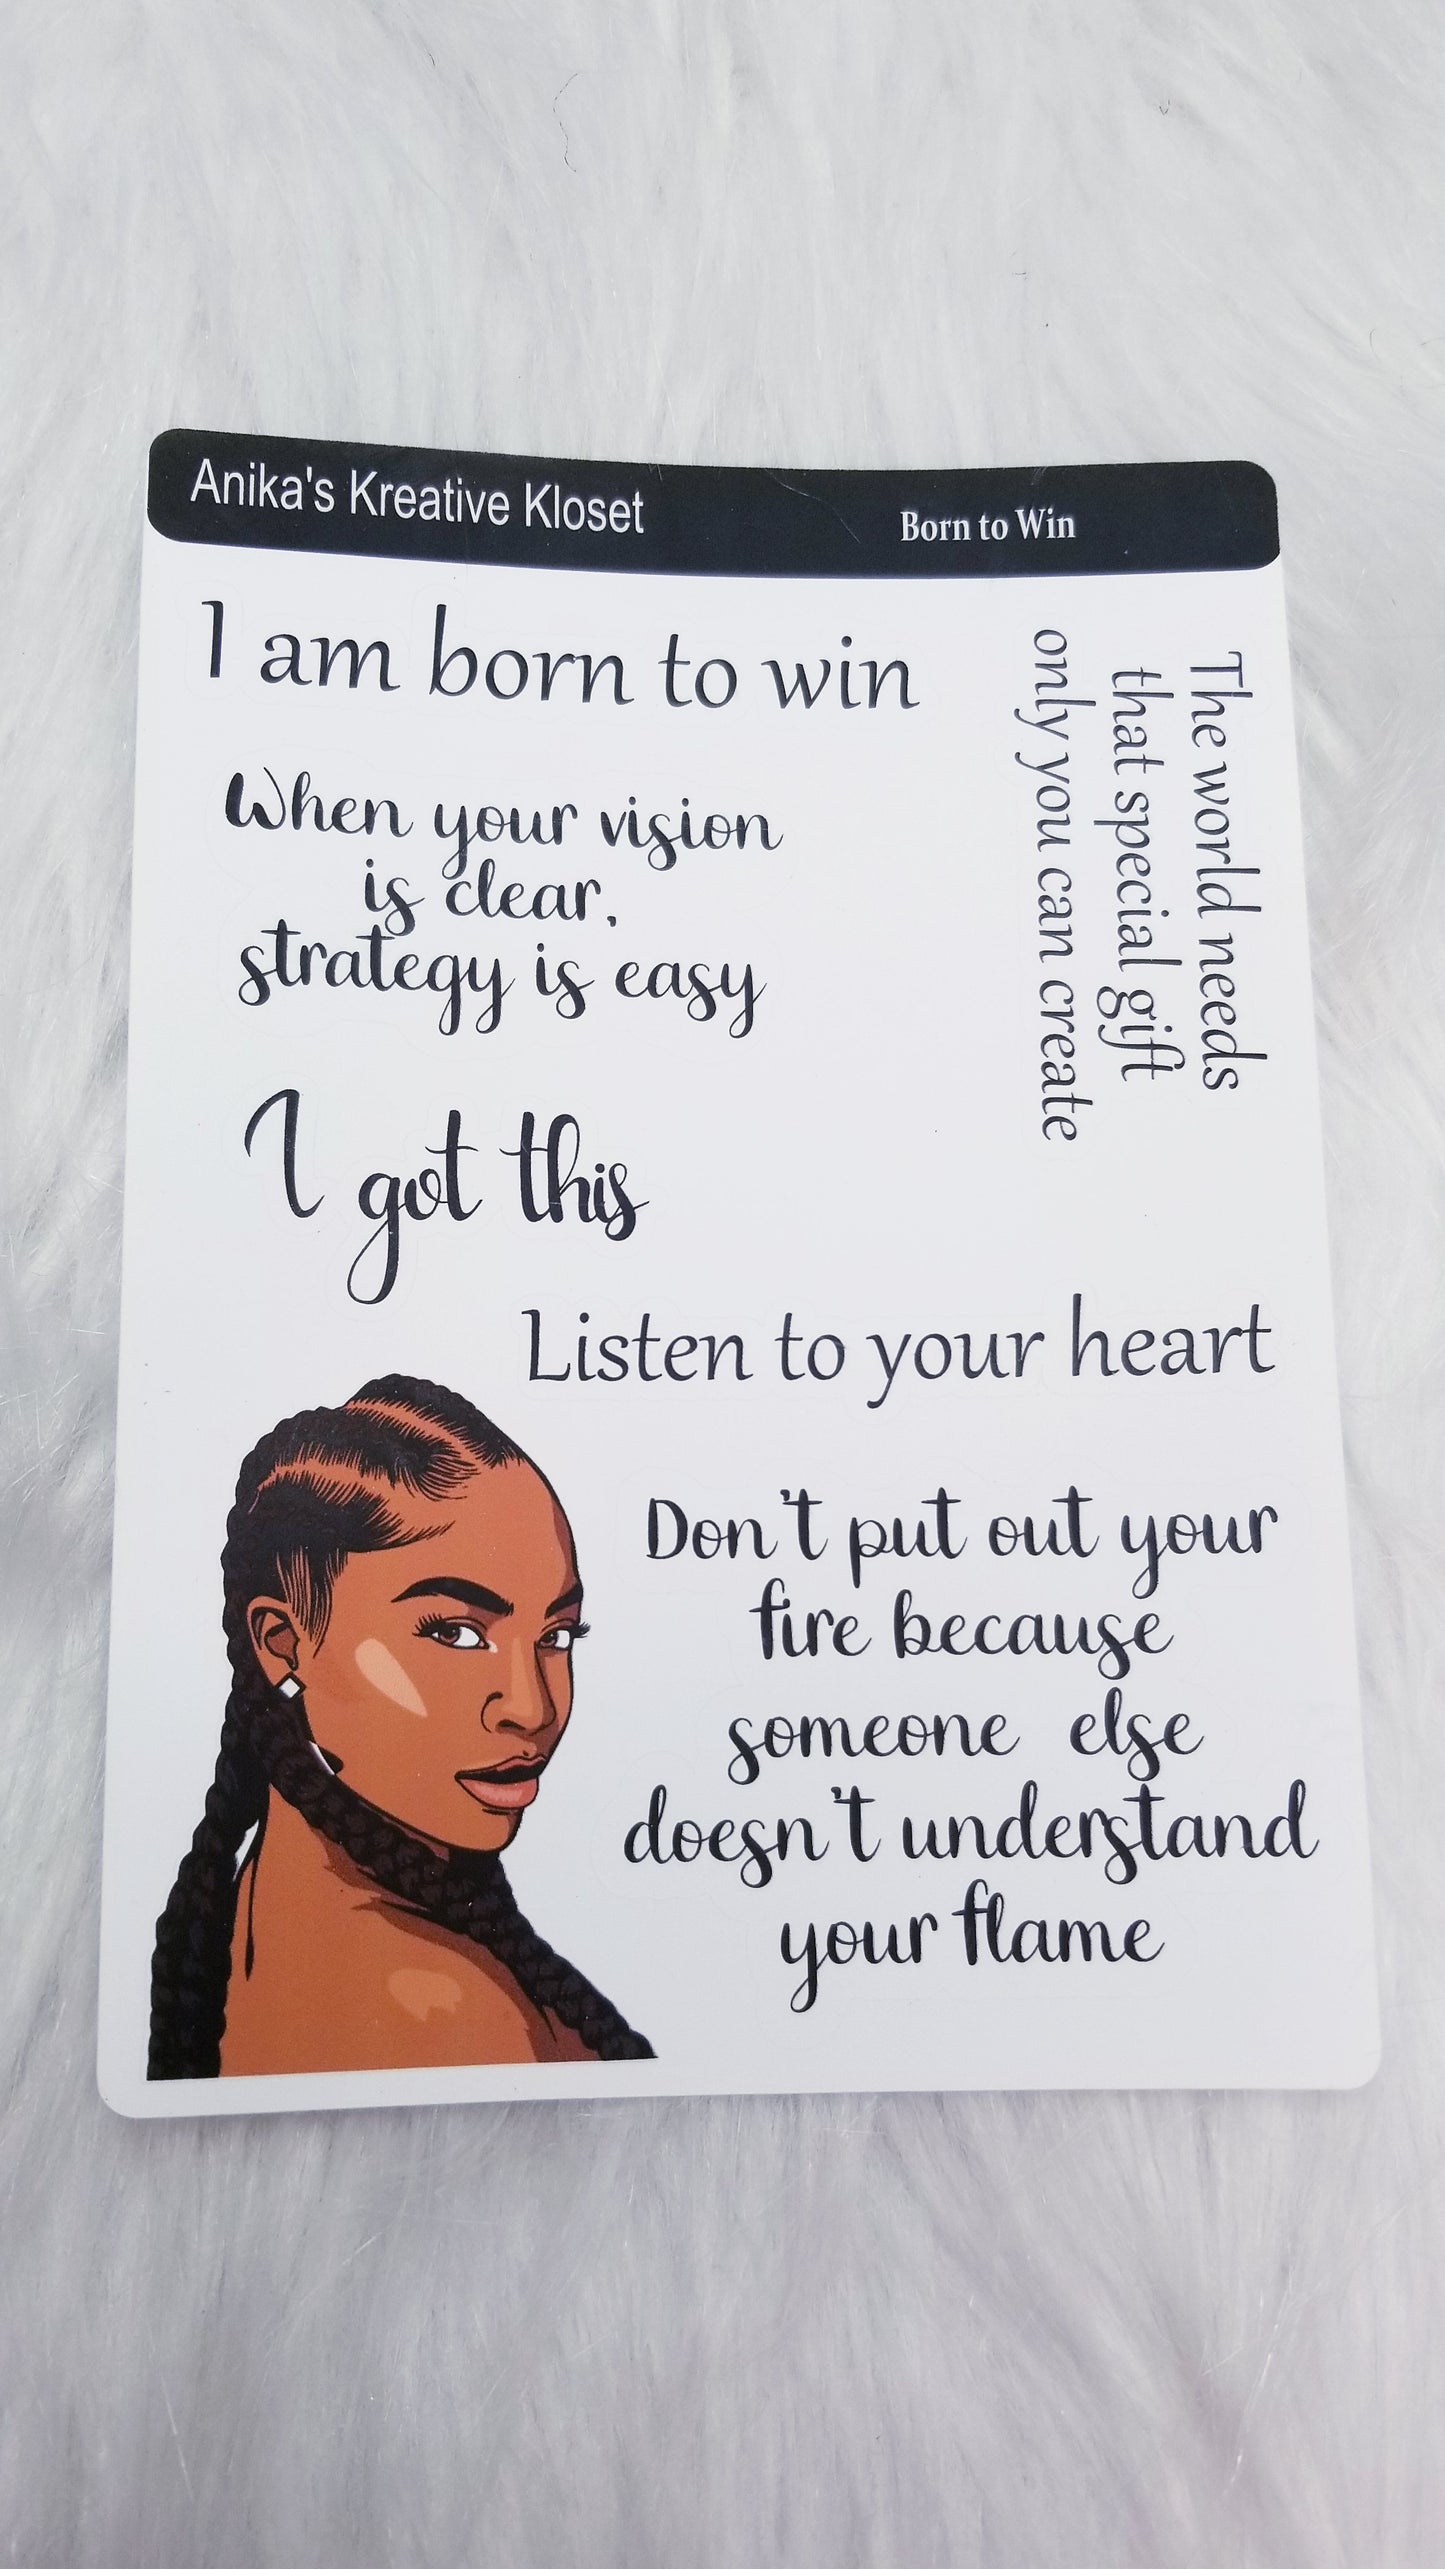 Anika's Kreative Kloset
Born to Win
I am born to win
When your vision
is clear,
strategy is easy
The world needs
that special gift
only you can create
I got this
Listen to your heart
Don't put out your
fire because
someone else
doesn't understand
your flame